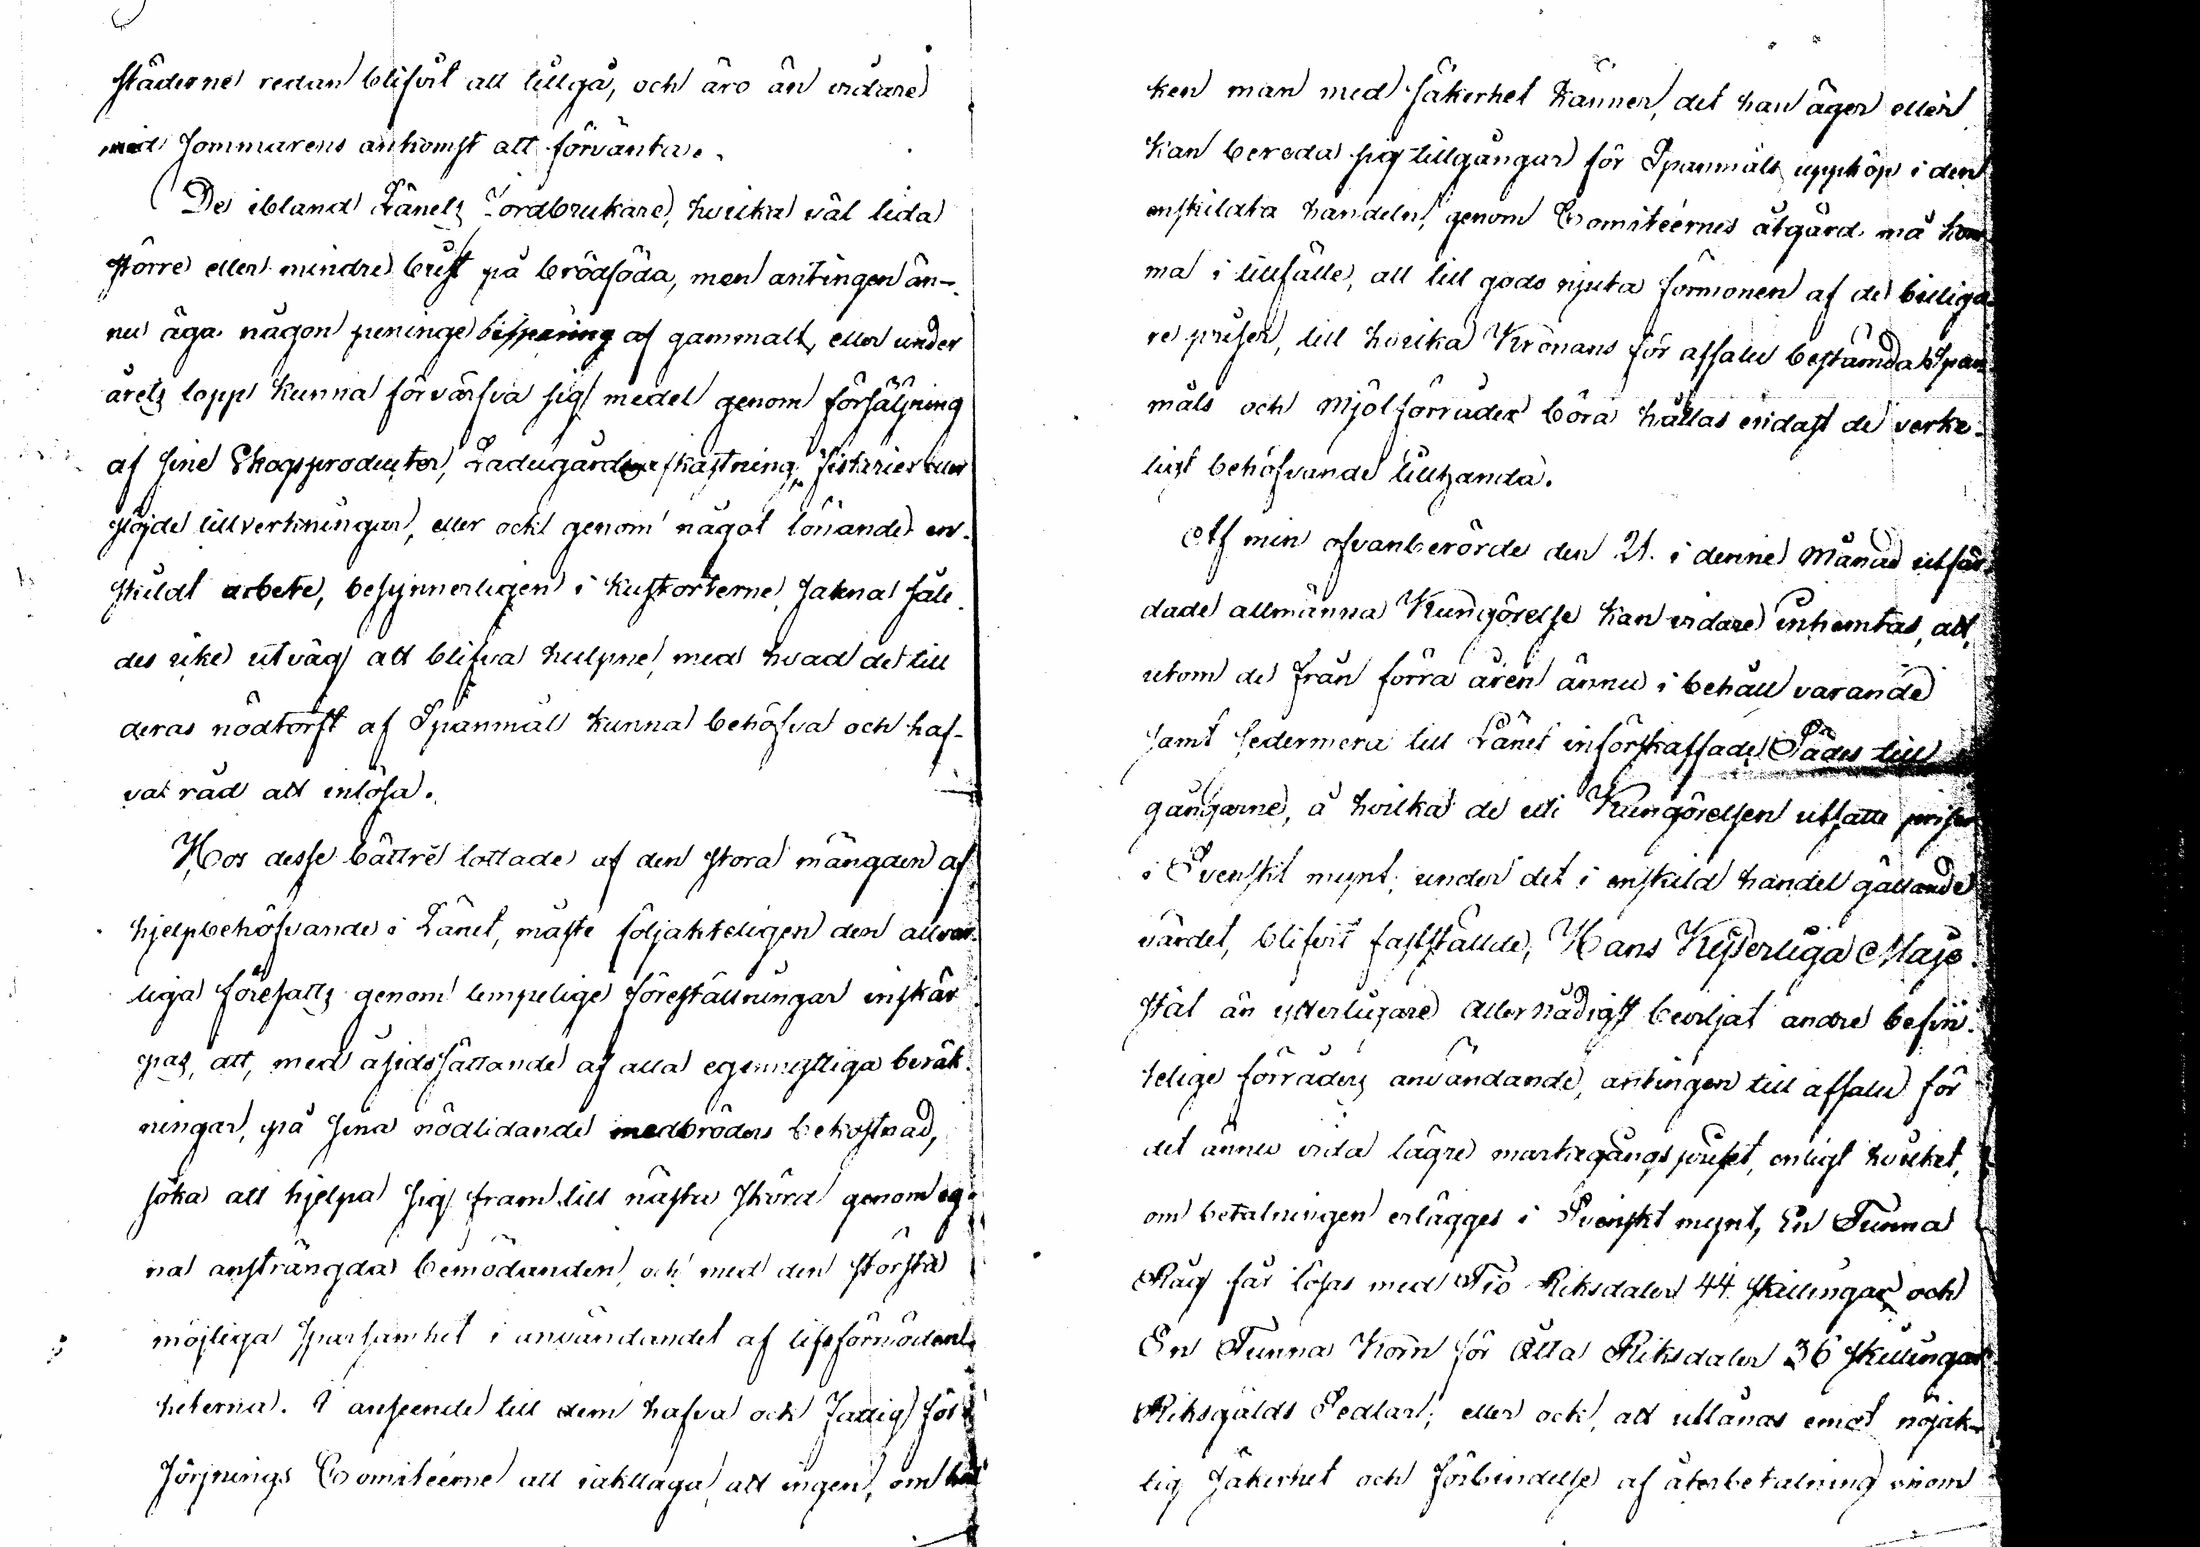 städerne redan blifvit att tillgå, och äro än vidare
med sommarens ankomst att förvänta.
De ibland Länets Jordbrukare, hvilka väl lida
större eller mindre brist på brödföda, men antingen än-
nu äga någon peninge besparing af gammalt, eller under
årets lopp kunna förvärfva sig medel genom försäljning
af sine Skogsproducter, Ladugårds afkastning, fiskerier eller
slöjde tillverkningar, eller ock genom något lönande en-
skildt arbete, besynnerligen i kustorterne, sakna såle-
des icke utväg att blifva hulpne med hvad de till
deras nödtorft af Spanmål kunna behöfva och haf-
va råd att inlösa.
Hos desse bättre lottade af den stora mängden af
hjelpbehöfvande i Länet, måste följakteligen den allvar-
liga föresatts genom lempelige föreställningar inskär-
pas, att, med åsidosättande af alla egennyttiga beräk-
ningar, på sina nödlidande medbröders bekostnad,
söka att hjelpa sig fram till nästa skörd genom eg-
na ansträngda bemödanden och med den största
möjliga sparsamhet i användandet af lifsförnöden-
heterna. I anseende till dem hafva ock Fattig för-
sörjnings Comitéerne att iakttaga, att ingen, om hvil-
ken man med säkerhet känner, det han äger eller
kan bereda sig tillgångar för Spanmåls upphöp i den
enskildta handeln, genom Comitéernes åtgärd må kom-
ma i tillfälle, att till godo njuta förmonen af de billiga-
re priser, till hvilka Kronans för afsalu bestämda Span-
måls och Mjölförråder böra hållas endast de verke-
ligt behöfvande tillhanda.
Af min ofvanberörde den 21. i denne Månad utfär-
dade allmänna Kungörelse kan vidare inhemtas, att,
utom de från förra åren ännu i behåll varande
samt sedermera till Länet införskaffade Sädes till
gångarne, å hvilka de uti Kungörelsen utsatte priser
i Svenskt mynt, under det i enskild handel gällande
värdet, blifvit fastställde, Hans Kejserliga Maje-
stät än ytterligare Allernådigst beviljat andre befin-
telige förråders användande, antingen till afsalu för
det ännu vida lägre markegångspriset, enligt hvilket,
om betalningen erlägges i Svenskt mynt, En Tunna
Råg får lösas med Tio Riksdaler 44 skillingar och
En Tunna Korn för Åtta Riksdaler 36 skillingar
Riksgälds Sedlar; eller ock, att utlånas emot nöjak-
tig säkerhet och förbindelse af återbetalning inom